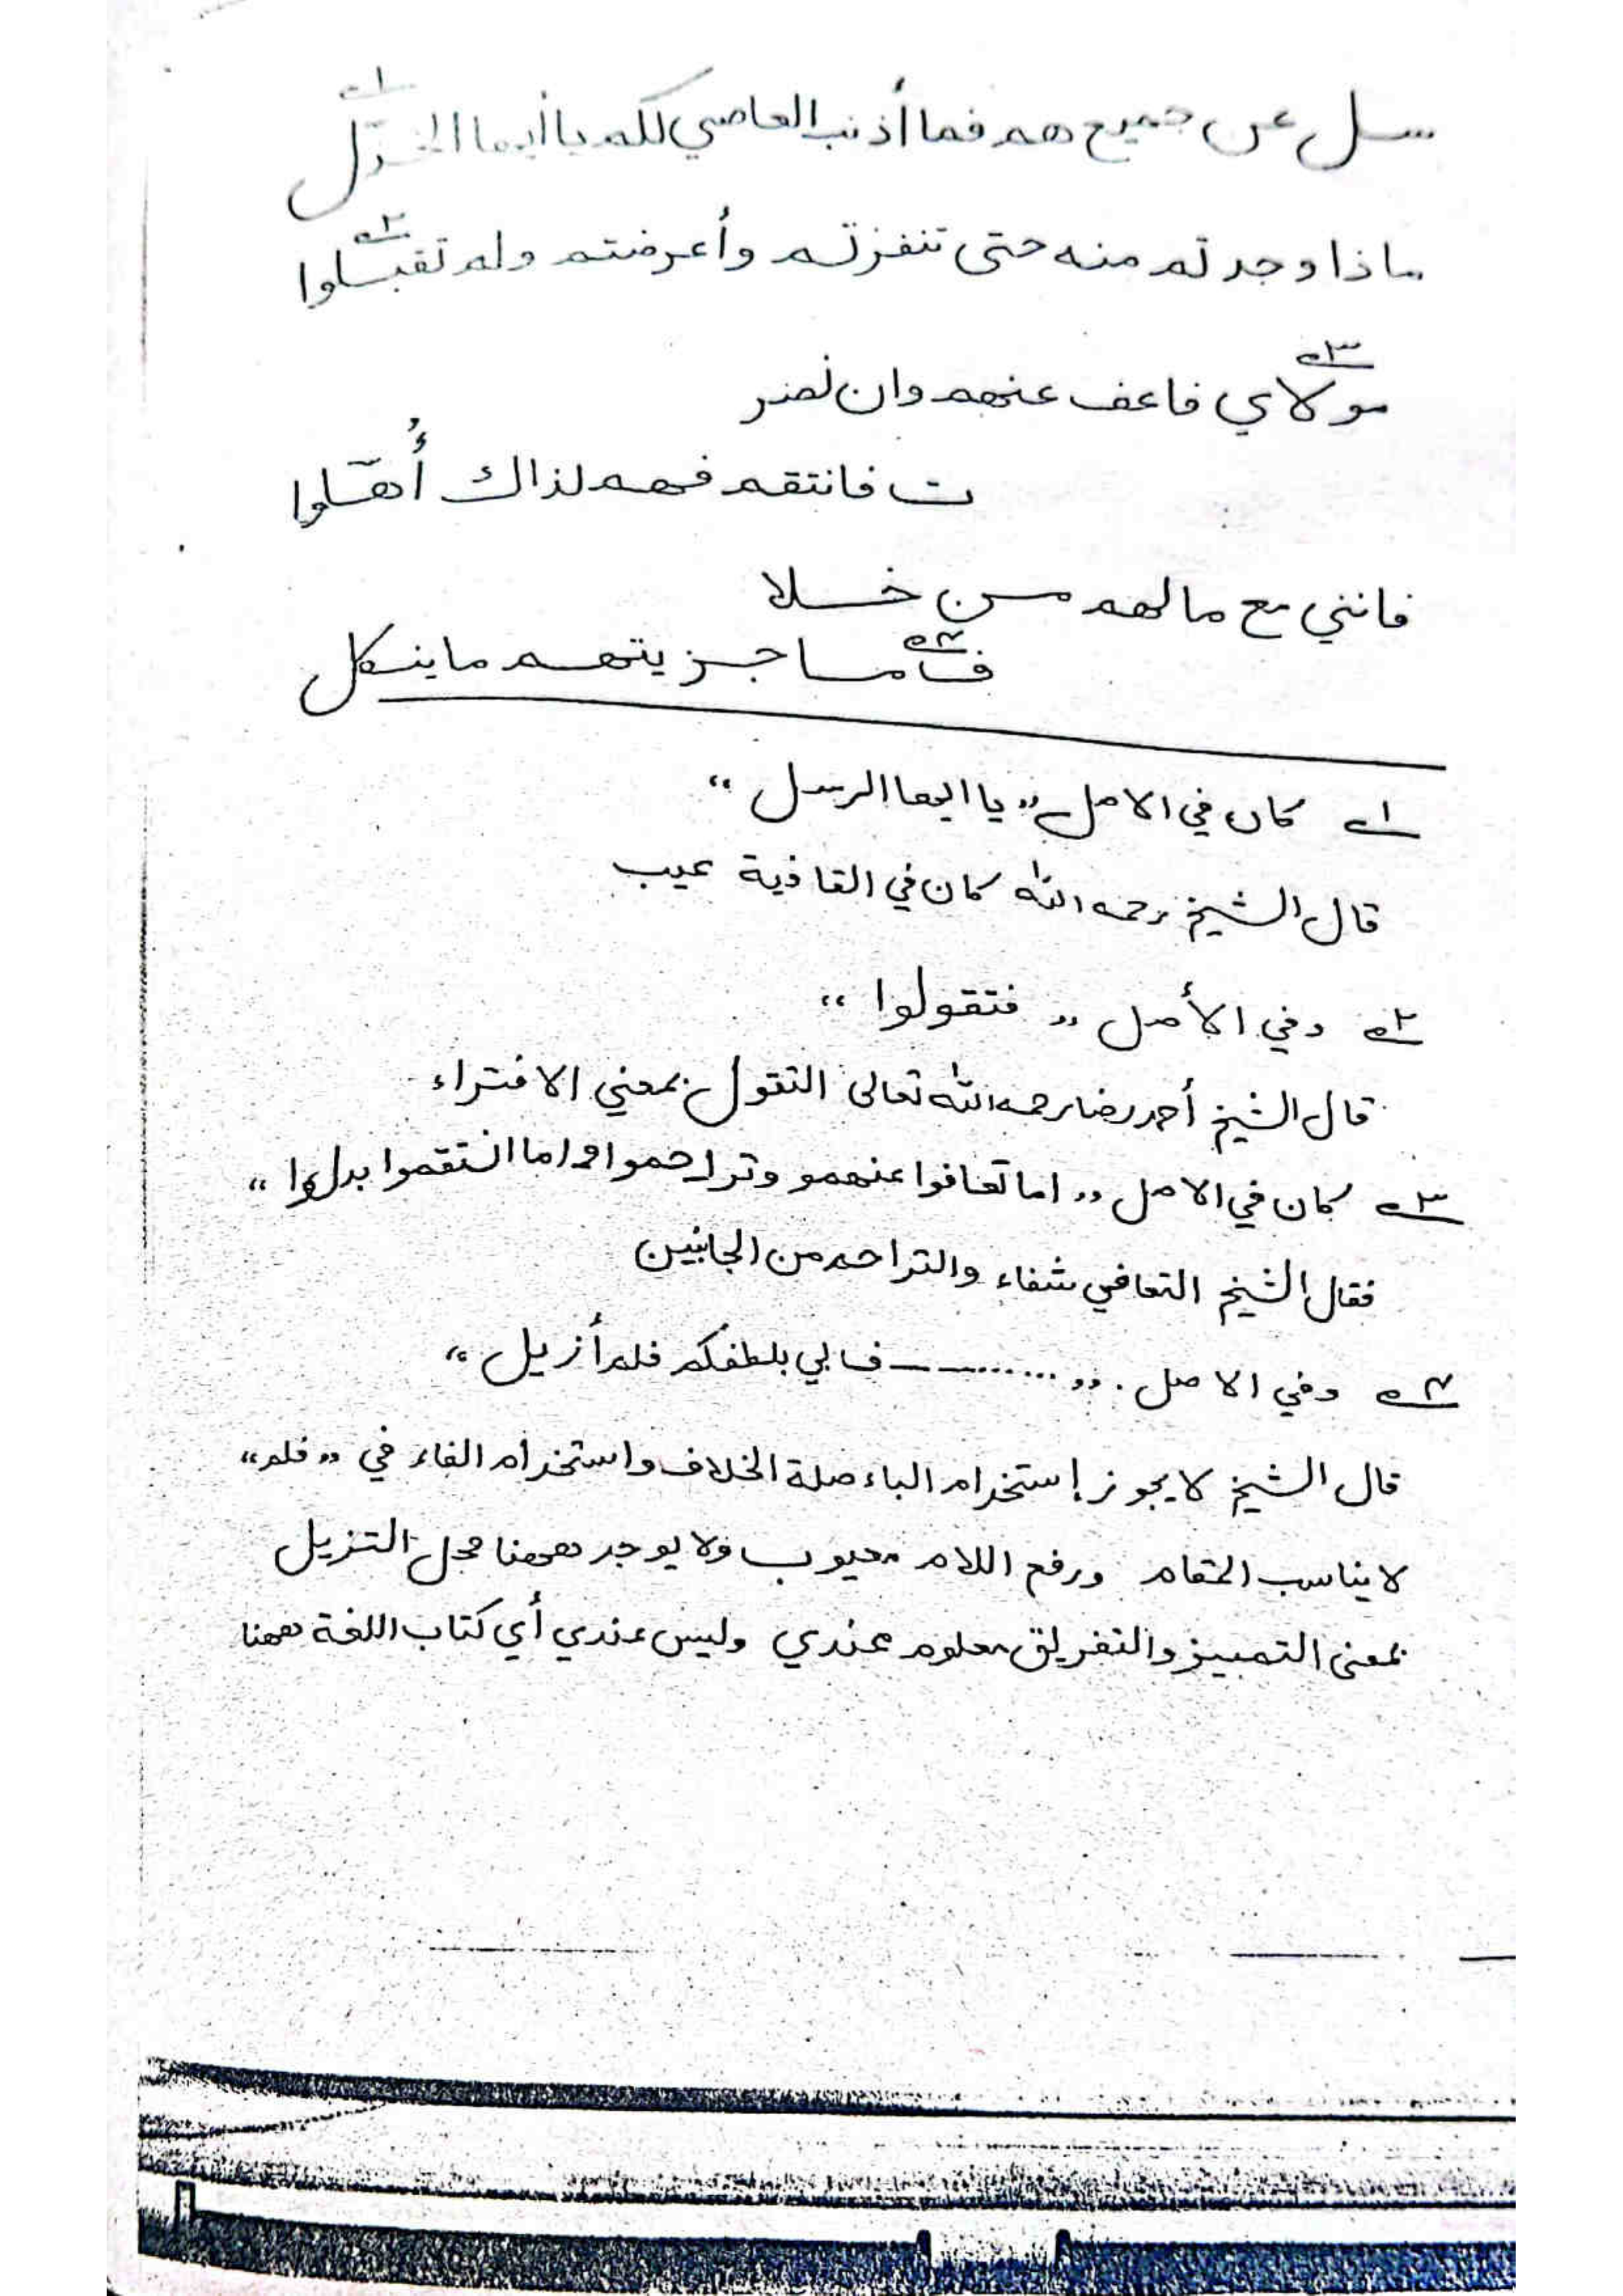 سل عن جميع هم فما أذنب العاصي لكم يا أيها الخذّل ١ـه
ماذا وجدتم منه حتى تنفزتم وأعرضتم ولم تقبلوا ٢ـه
مولاي ٣ـه فاعف عنهم وان نصر
ت فانتقم فهم لذاك أُهّلوا
فانني مع مالهم من خلا
ف ٤ـه ما جزيتهم ما ينكل
١ـه كان في الاصل ،، يا ايها الرسل ،،
قال الشيخ رحمه الله كان في القافية عيب
٢ـه وفي الأصل ،، فتقولوا ،،
قال الشيخ أحمد رضا رحمه الله تعالى التقول بمعني الافتراء
٣ـه كان في الاصل ،، اما تعافوا عنهمو وتراحموا واما انتقموا ،،
فقال الشيخ التعافي شفاء والتراحم من الجانبين
٤ـه وفي الاصل ،، .......... ف لي بلطفكم فلم أزيل ،،
قال الشيخ لا يجوز إستخدام الباء صلة الخلاف واستخدام الفاء في ،، فلم ،،
لا يناسب المقام ورفع اللام معيوب ولا يوجد ههنا محل التزيل
بمعنى التمييز والتفريق معلوم عندي وليس عندي أي كتاب اللغة ههنا